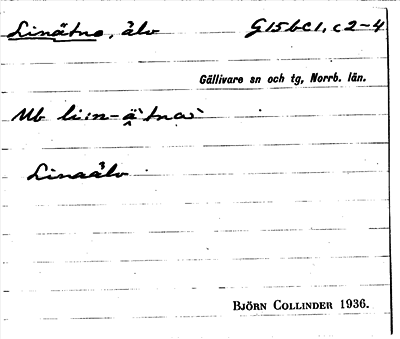 Linätno, älv G15b-c1, c2-4
Gällivare sn och tg, Norrb. län.
Ub li:n-ä`tnɑ`
Linaälv
BJÖRN COLLINDER 1936.